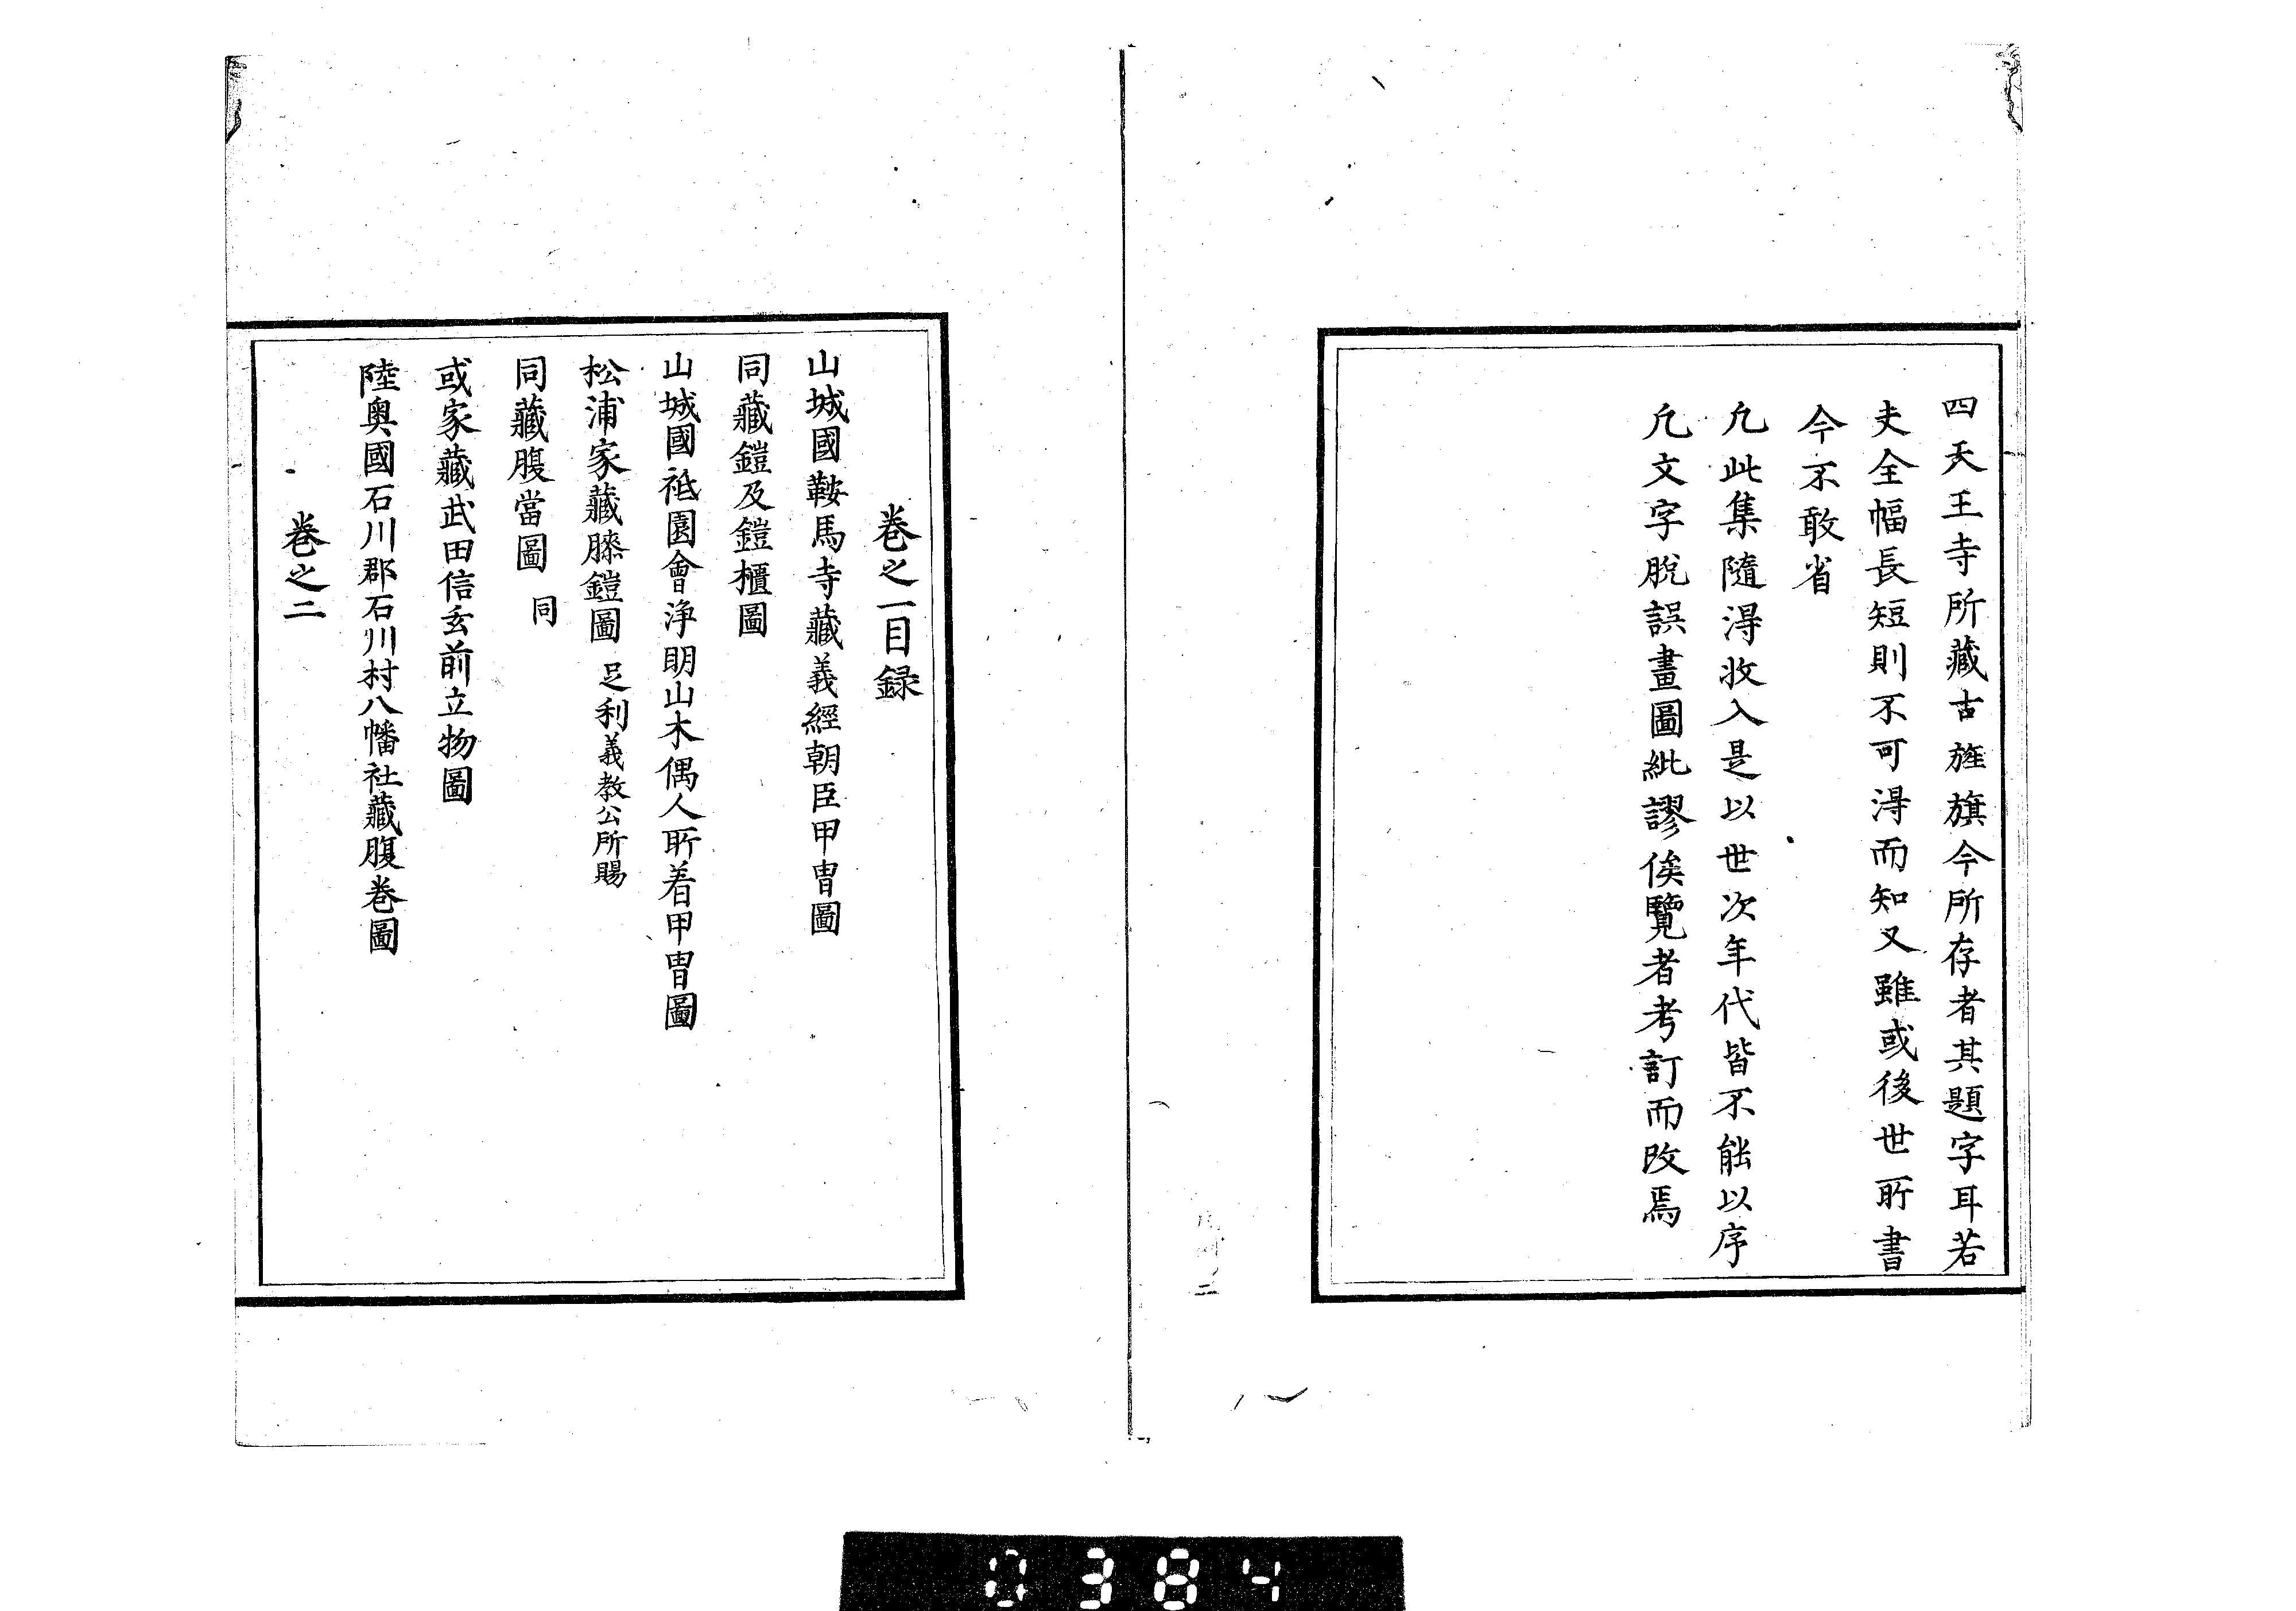 四天王寺所藏古旌旗今所存者其題字耳若
夫全幅長短則不可淂而知又雖或後世所書
今不敢省
凢此集隨淂收入是以世次年代皆不能以序
凢文字脫誤畫圖紕謬俟覽者考訂而改焉
巻之一目録
山城國鞍馬寺藏義經朝臣甲冑圖
同藏鎧及鎧櫃圖
山城國祇園會浄明山木偶人所着甲冑圖
松浦家藏膝鎧圖 足利義教公所賜
同藏腹當圖 同
或家藏武田信玄前立物圖
陸奥國石川郡石川村八幡社藏腹巻圖
巻之二
0384